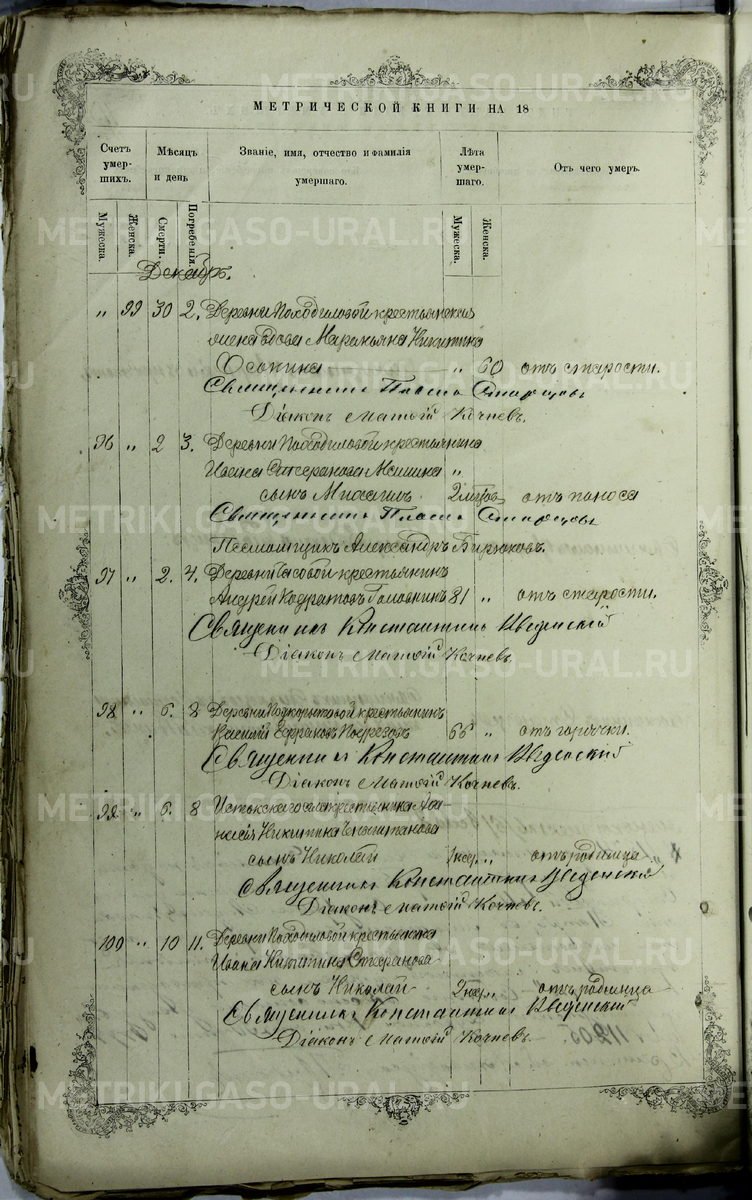 МЕТРИЧЕСКОЙ КНИГИ НА 18
Счетъ умер-шихъ. Мѣсяцъ и день Званіе, имя, отчество и фамилія умершаго. Лѣта умер-шаго. Отъ чего умеръ.
Мужеска. Женска. Смерти. Погребенія. Мужеска. Женска.
Декабрь.
" 99 30 2. Деревни Походиловой крестьянская
жена вдова Маремьяна Никитина
Осокина " 60 отъ старости.
Священникъ Павелъ Старцовъ
Діаконъ Матѳій Кочневъ.
96 " 2 3. Деревни Походиловой крестьянина
Ивана Стефанова "
сынъ Михаилъ. 2 отъ поноса
Священникъ Павелъ Старцовъ
Псаломщикъ Александръ Бирюковъ.
97 " 2. 4. Деревни крестьянинъ
Андрей Кодратовъ Головнинъ 81 " отъ старости.
Священникъ Константинъ Введенскій
Діаконъ Матѳій Кочневъ.
98 " 6. 8 Деревни крестьянинъ
Василій 66 " отъ горячки.
Священникъ Константинъ Введенскій
Діаконъ Матѳій Кочневъ.
99 " 6. 8 села крестьянина
Никитина
сынъ Николай " отъ родимца
Священникъ Константинъ Введенскій
Діаконъ Матѳій Кочневъ.
100 " 10 11. Деревни Походиловой крестьянина
Ивана Никитина Стефанова
сынъ Николай 2 нед. " отъ родимца
Священникъ Константинъ Введенскій
Діаконъ Матѳій Кочневъ.
METRIKI.GASO-URAL.RU